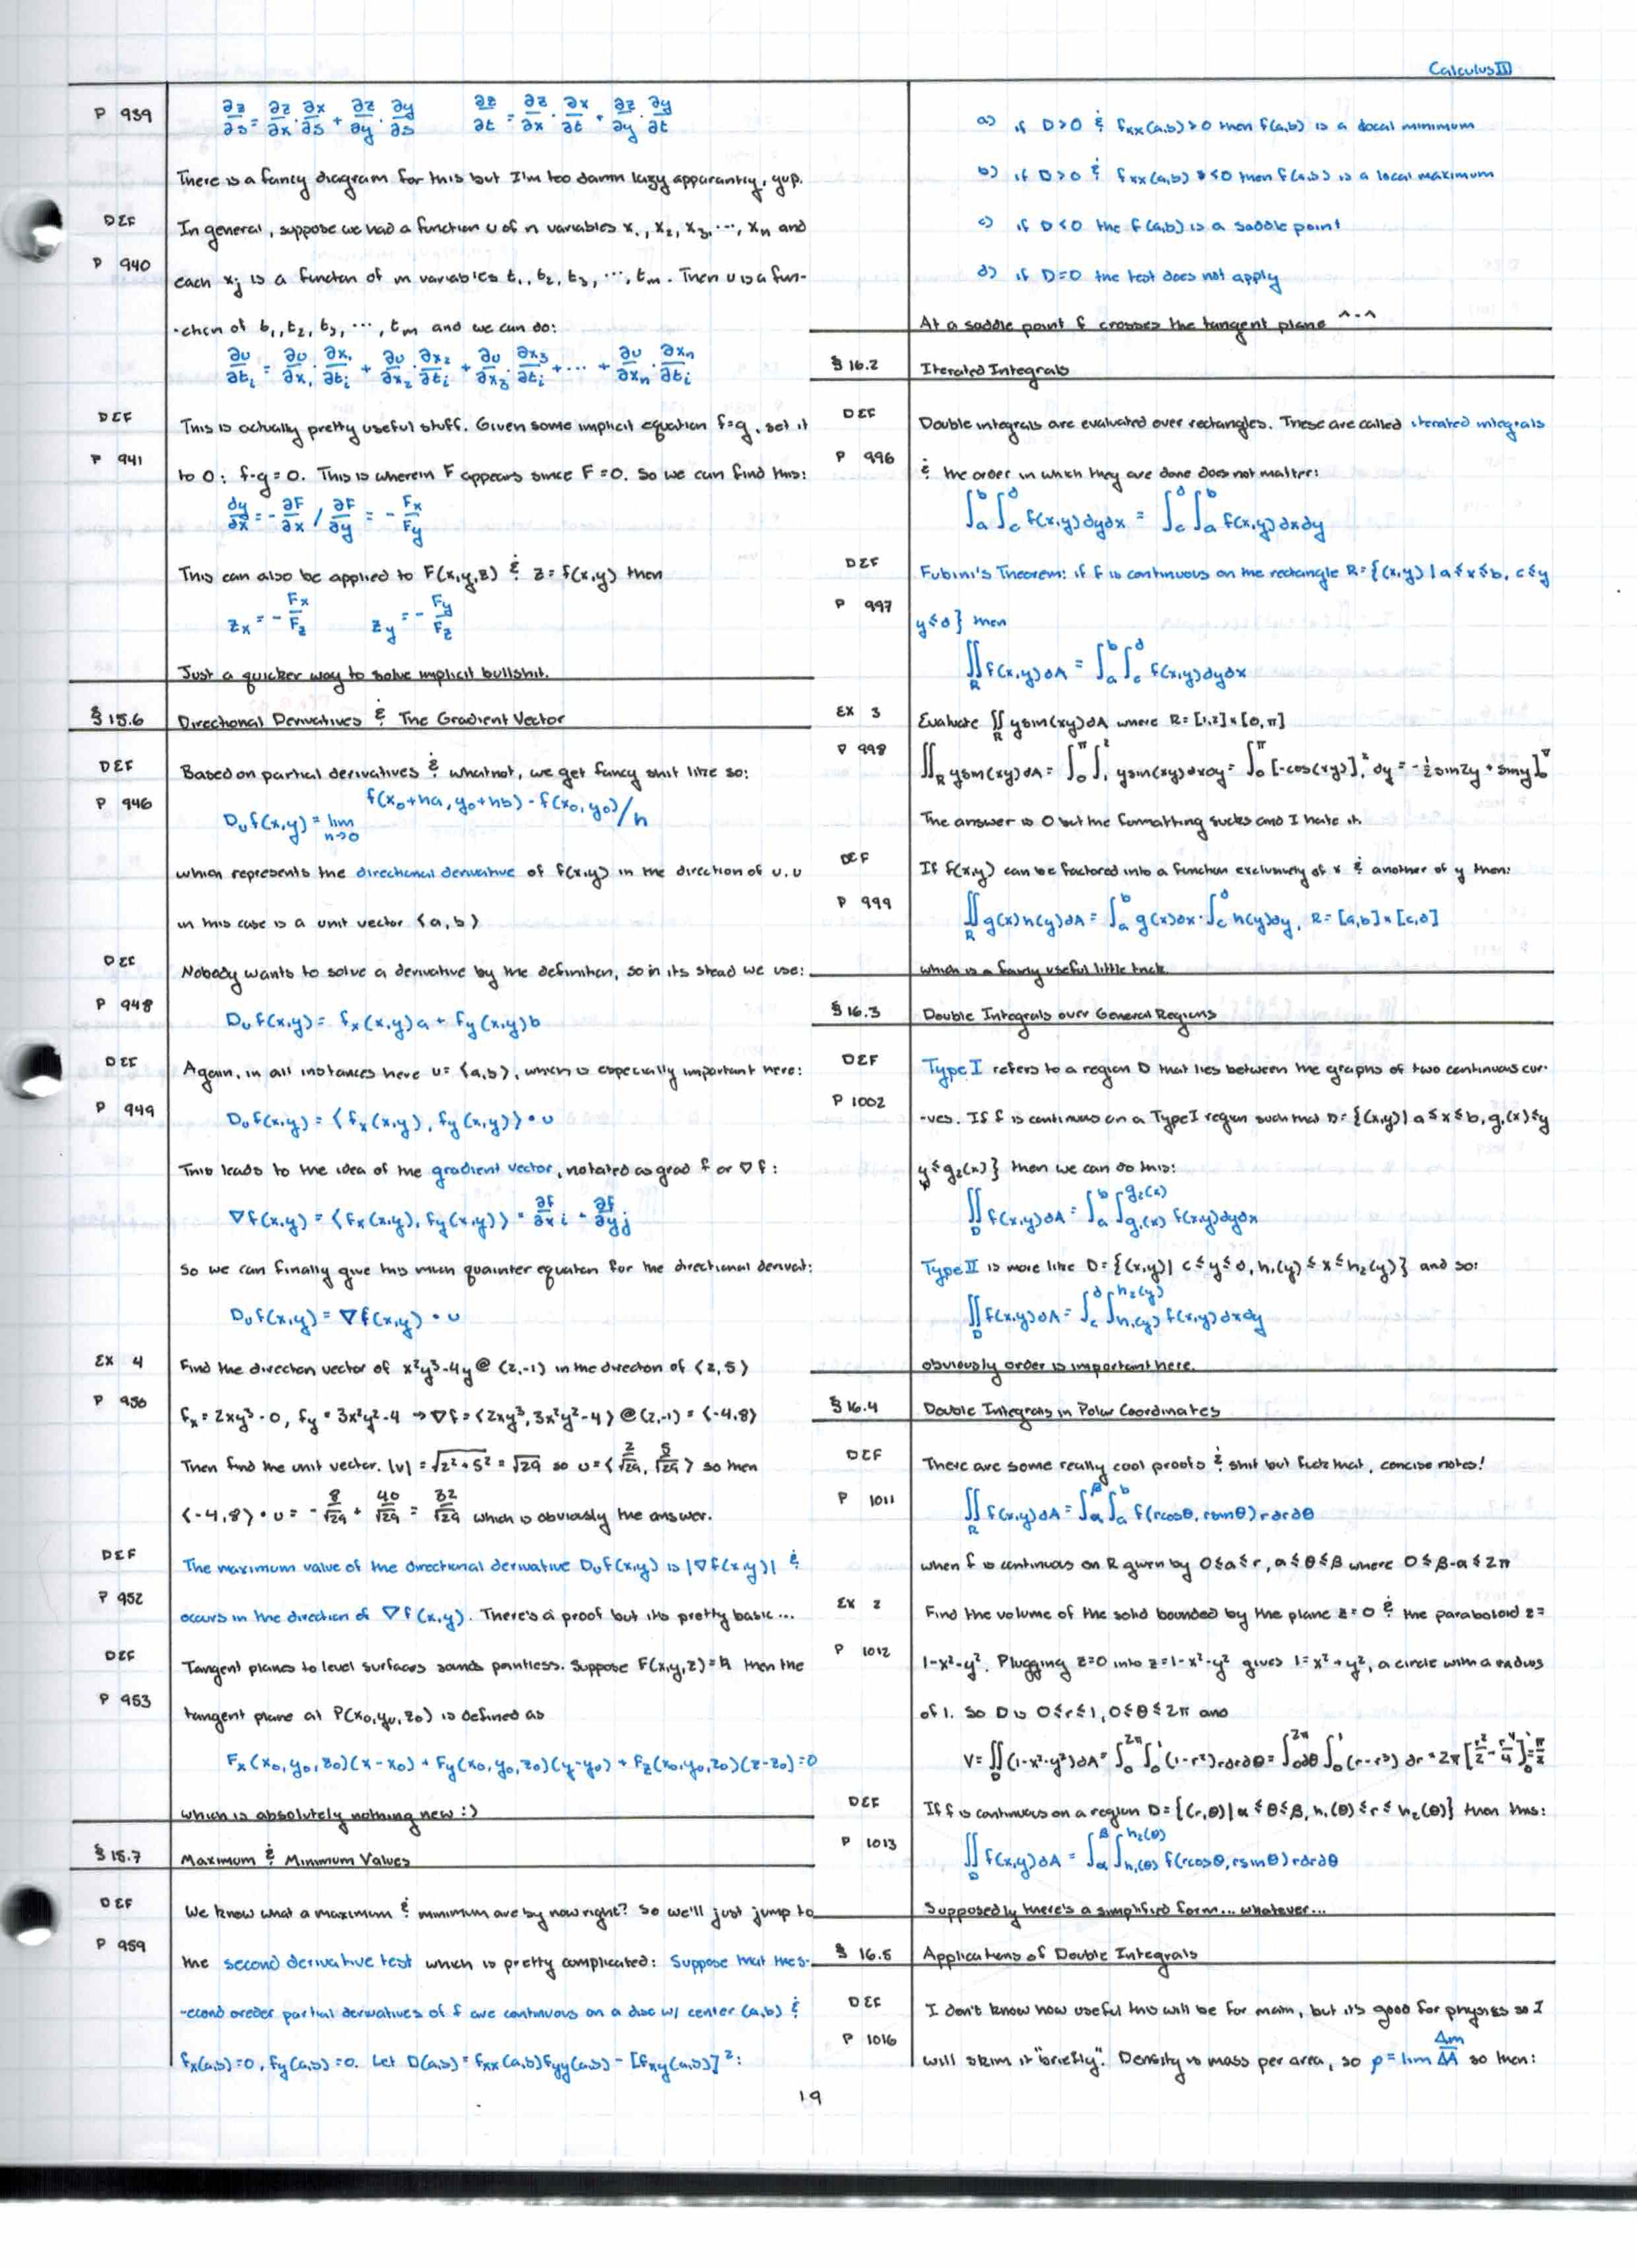 Calculus III
P 939
∂z/∂s = ∂z/∂x · ∂x/∂s + ∂z/∂y · ∂y/∂s    ∂z/∂t = ∂z/∂x · ∂x/∂t + ∂z/∂y · ∂y/∂t
There is a fancy diagram for this but I'm too damn lazy apparantly, yup.
DEF In general, suppose we had a function u of n variables x₁, x₂, x₃, ⋯, xₙ and
P 940 each xⱼ is a function of m variables t₁, t₂, t₃, ⋯, tₘ. Then u is a fun-
-ction of t₁, t₂, t₃, ⋯, tₘ and we can do:
∂u/∂tᵢ = ∂u/∂x₁ · ∂x₁/∂tᵢ + ∂u/∂x₂ · ∂x₂/∂tᵢ + ∂u/∂x₃ · ∂x₃/∂tᵢ + ⋯ + ∂u/∂xₙ · ∂xₙ/∂tᵢ
DEF This is actually pretty useful stuff. Given some implicit equation f=g, set it
P 941 to 0: f-g=0. This is wherein F appears since F=0. So we can find this:
dy/dx = - ∂F/∂x / ∂F/∂y = - Fx/Fy
This can also be applied to F(x,y,z) & z=f(x,y) then
zx = - Fx/Fz    zy = - Fy/Fz
Just a quicker way to solve implicit bullshit.
§ 15.6 Directional Derivatives & The Gradient Vector
DEF Based on partial derivatives & whatnot, we get fancy shit like so:
P 946 Duf(x,y) = lim h→0 f(x₀+ha, y₀+hb) - f(x₀,y₀)/h
which represents the directional derivative of f(x,y) in the direction of u. u
in this case is a unit vector ⟨a,b⟩
DEF Nobody wants to solve a derivative by the definition, so in its stead we use:
P 948 Duf(x,y) = fx(x,y)a + fy(x,y)b
DEF Again, in all instances here u=⟨a,b⟩, which is especially important here:
P 949 Duf(x,y) = ⟨fx(x,y), fy(x,y)⟩ · u
This leads to the idea of the gradient vector, notated as grad f or ∇f:
∇f(x,y) = ⟨fx(x,y), fy(x,y)⟩ = ∂f/∂x i + ∂f/∂y j
So we can finally give this much quainter equation for the directional derivat:
Duf(x,y) = ∇f(x,y) · u
EX 4 Find the direction vector of x²y³-4y @ (2,-1) in the direction of ⟨2,5⟩
P 950 fx = 2xy³-0, fy = 3x²y²-4 → ∇f = ⟨2xy³, 3x²y²-4⟩ @ (2,-1) = ⟨-4,8⟩
Then find the unit vector. |v| = √2²+5² = √29 so u = ⟨2/√29, 5/√29⟩ so then
⟨-4,8⟩ · u = - 8/√29 + 40/√29 = 32/√29 which is obviously the answer.
DEF The maximum value of the directional derivative Duf(x,y) is |∇f(x,y)| &
P 952 occurs in the direction of ∇f(x,y). There's a proof but its pretty basic...
DEF Tangent planes to level surfaces sounds pointless. Suppose F(x,y,z)=k then the
P 953 tangent plane at P(x₀,y₀,z₀) is defined as
Fx(x₀,y₀,z₀)(x-x₀) + Fy(x₀,y₀,z₀)(y-y₀) + Fz(x₀,y₀,z₀)(z-z₀)=0
which is absolutely nothing new :)
§ 15.7 Maximum & Minimum Values
DEF We know what a maximum & minimum are by now right? So we'll just jump to
P 959 the second derivative test which is pretty complicated: Suppose that the s-
-econd oreder partial derivatives of f are continuous on a disc w/ center (a,b) &
fx(a,b)=0, fy(a,b)=0. Let D(a,b) = fxx(a,b)fyy(a,b) - [fxy(a,b)]²:
a) if D>0 & fxx(a,b)>0 then f(a,b) is a local minimum
b) if D>0 & fxx(a,b)<0 then f(a,b) is a local maximum
c) if D<0 the f(a,b) is a saddle point
d) if D=0 the test does not apply
At a saddle point f crosses the tangent plane ^-^
§ 16.2 Iterated Integrals
DEF Double integrals are evaluated over rectangles. These are called iterated integrals
P 996 & the order in which they are done does not matter:
∫ₐᵇ∫c^d f(x,y)dydx = ∫c^d∫ₐᵇ f(x,y)dxdy
DEF Fubini's Theorem: if f is continuous on the rectangle R={(x,y)|a≤x≤b, c≤y
P 997 y≤d} then
∬R f(x,y)dA = ∫ₐᵇ∫c^d f(x,y)dydx
EX 3 Evaluate ∬R ysin(xy)dA where R=[1,2]×[0,π]
P 998 ∬R ysin(xy)dA = ∫₀^π∫₁² ysin(xy)dxdy = ∫₀^π [-cos(xy)]₁² dy = -½sin2y + siny]₀^π
The answer is 0 but the formatting sucks and I hate it.
DEF If f(x,y) can be factored into a function exclusively of x & another of y then:
P 999 ∬R g(x)h(y)dA = ∫ₐᵇ g(x)dx · ∫c^d h(y)dy, R=[a,b]×[c,d]
which is a fairly useful little trick.
§ 16.3 Double Integrals over General Regions
DEF Type I refers to a region D that lies between the graphs of two continuous cur-
P 1002 -ves. If f is continuous on a Type I region such that D={(x,y)|a≤x≤b, g₁(x)≤y
y≤g₂(x)} then we can do this:
∬D f(x,y)dA = ∫ₐᵇ∫g₁(x)^g₂(x) f(x,y)dydx
Type II is more like D={(x,y)|c≤y≤d, h₁(y)≤x≤h₂(y)} and so:
∬D f(x,y)dA = ∫c^d∫h₁(y)^h₂(y) f(x,y)dxdy
obviously order is important here.
§ 16.4 Double Integrals in Polar Coordinates
DEF There are some really cool proofs & shit but fuck that, concise notes!
P 1011 ∬R f(x,y)dA = ∫α^β∫ₐᵇ f(rcosθ, rsinθ)rdrdθ
when f is continuous on R given by 0≤a≤r, α≤θ≤β where 0≤β-α≤2π
EX 2 Find the volume of the solid bounded by the plane z=0 & the paraboloid z=
P 1012 1-x²-y². Plugging z=0 into z=1-x²-y² gives 1=x²+y², a circle with a radius
of 1. So D is 0≤r≤1, 0≤θ≤2π and
V=∬D(1-x²-y²)dA=∫₀^2π∫₀¹(1-r²)rdrdθ=∫₀^2π dθ∫₀¹(r-r³)dr=2π[r²/2-r⁴/4]₀¹=π/2
DEF If f is continuous on a region D={(r,θ)|α≤θ≤β, h₁(θ)≤r≤h₂(θ)} than this:
P 1013 ∬D f(x,y)dA = ∫α^β∫h₁(θ)^h₂(θ) f(rcosθ, rsinθ)rdrdθ
Supposedly there's a simplified form... whatever...
§ 16.5 Applications of Double Integrals
DEF I don't know how useful this will be for main, but it's good for physics so I
P 1016 will skim it "briefly". Density is mass per area, so ρ=lim Δm/ΔA so then:
19